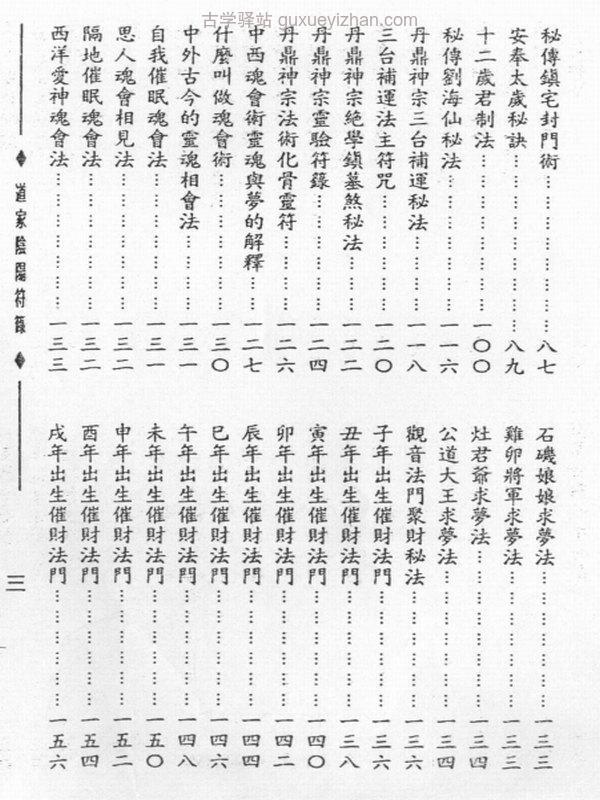 古学驿站 guxueyizhan.com
秘傳鎮宅封門術……………………八七
安奉太歲秘訣……………………八九
十二歲君制法……………………一〇〇
秘傳劉海仙秘法……………………一一六
丹鼎神宗三台補運秘法……………一一八
三台補運法主符咒…………………一二〇
丹鼎神宗絕學鎮墓煞秘法…………一二二
丹鼎神宗靈驗符籙…………………一二四
丹鼎神宗法術化骨靈符……………一二六
中西魂會術靈魂與夢的解釋………一二七
什麼叫做魂會術……………………一三〇
中外古今的靈魂相會法……………一三一
自我催眠魂會法……………………一三一
思人魂會相見法……………………一三二
隔地催眠魂會法……………………一三二
西洋愛神魂會法……………………一三三
石磯娘娘求夢法……………………一三三
雞卵將軍求夢法……………………一三三
灶君爺求夢法………………………一三四
公道大王求夢法……………………一三四
觀音法門聚財秘法…………………一三六
子年出生催財法門…………………一三六
丑年出生催財法門…………………一三八
寅年出生催財法門…………………一四〇
卯年出生催財法門…………………一四二
辰年出生催財法門…………………一四四
巳年出生催財法門…………………一四六
午年出生催財法門…………………一四八
未年出生催財法門…………………一五〇
申年出生催財法門…………………一五二
酉年出生催財法門…………………一五四
戌年出生催財法門…………………一五六
道家陰陽符籙
三